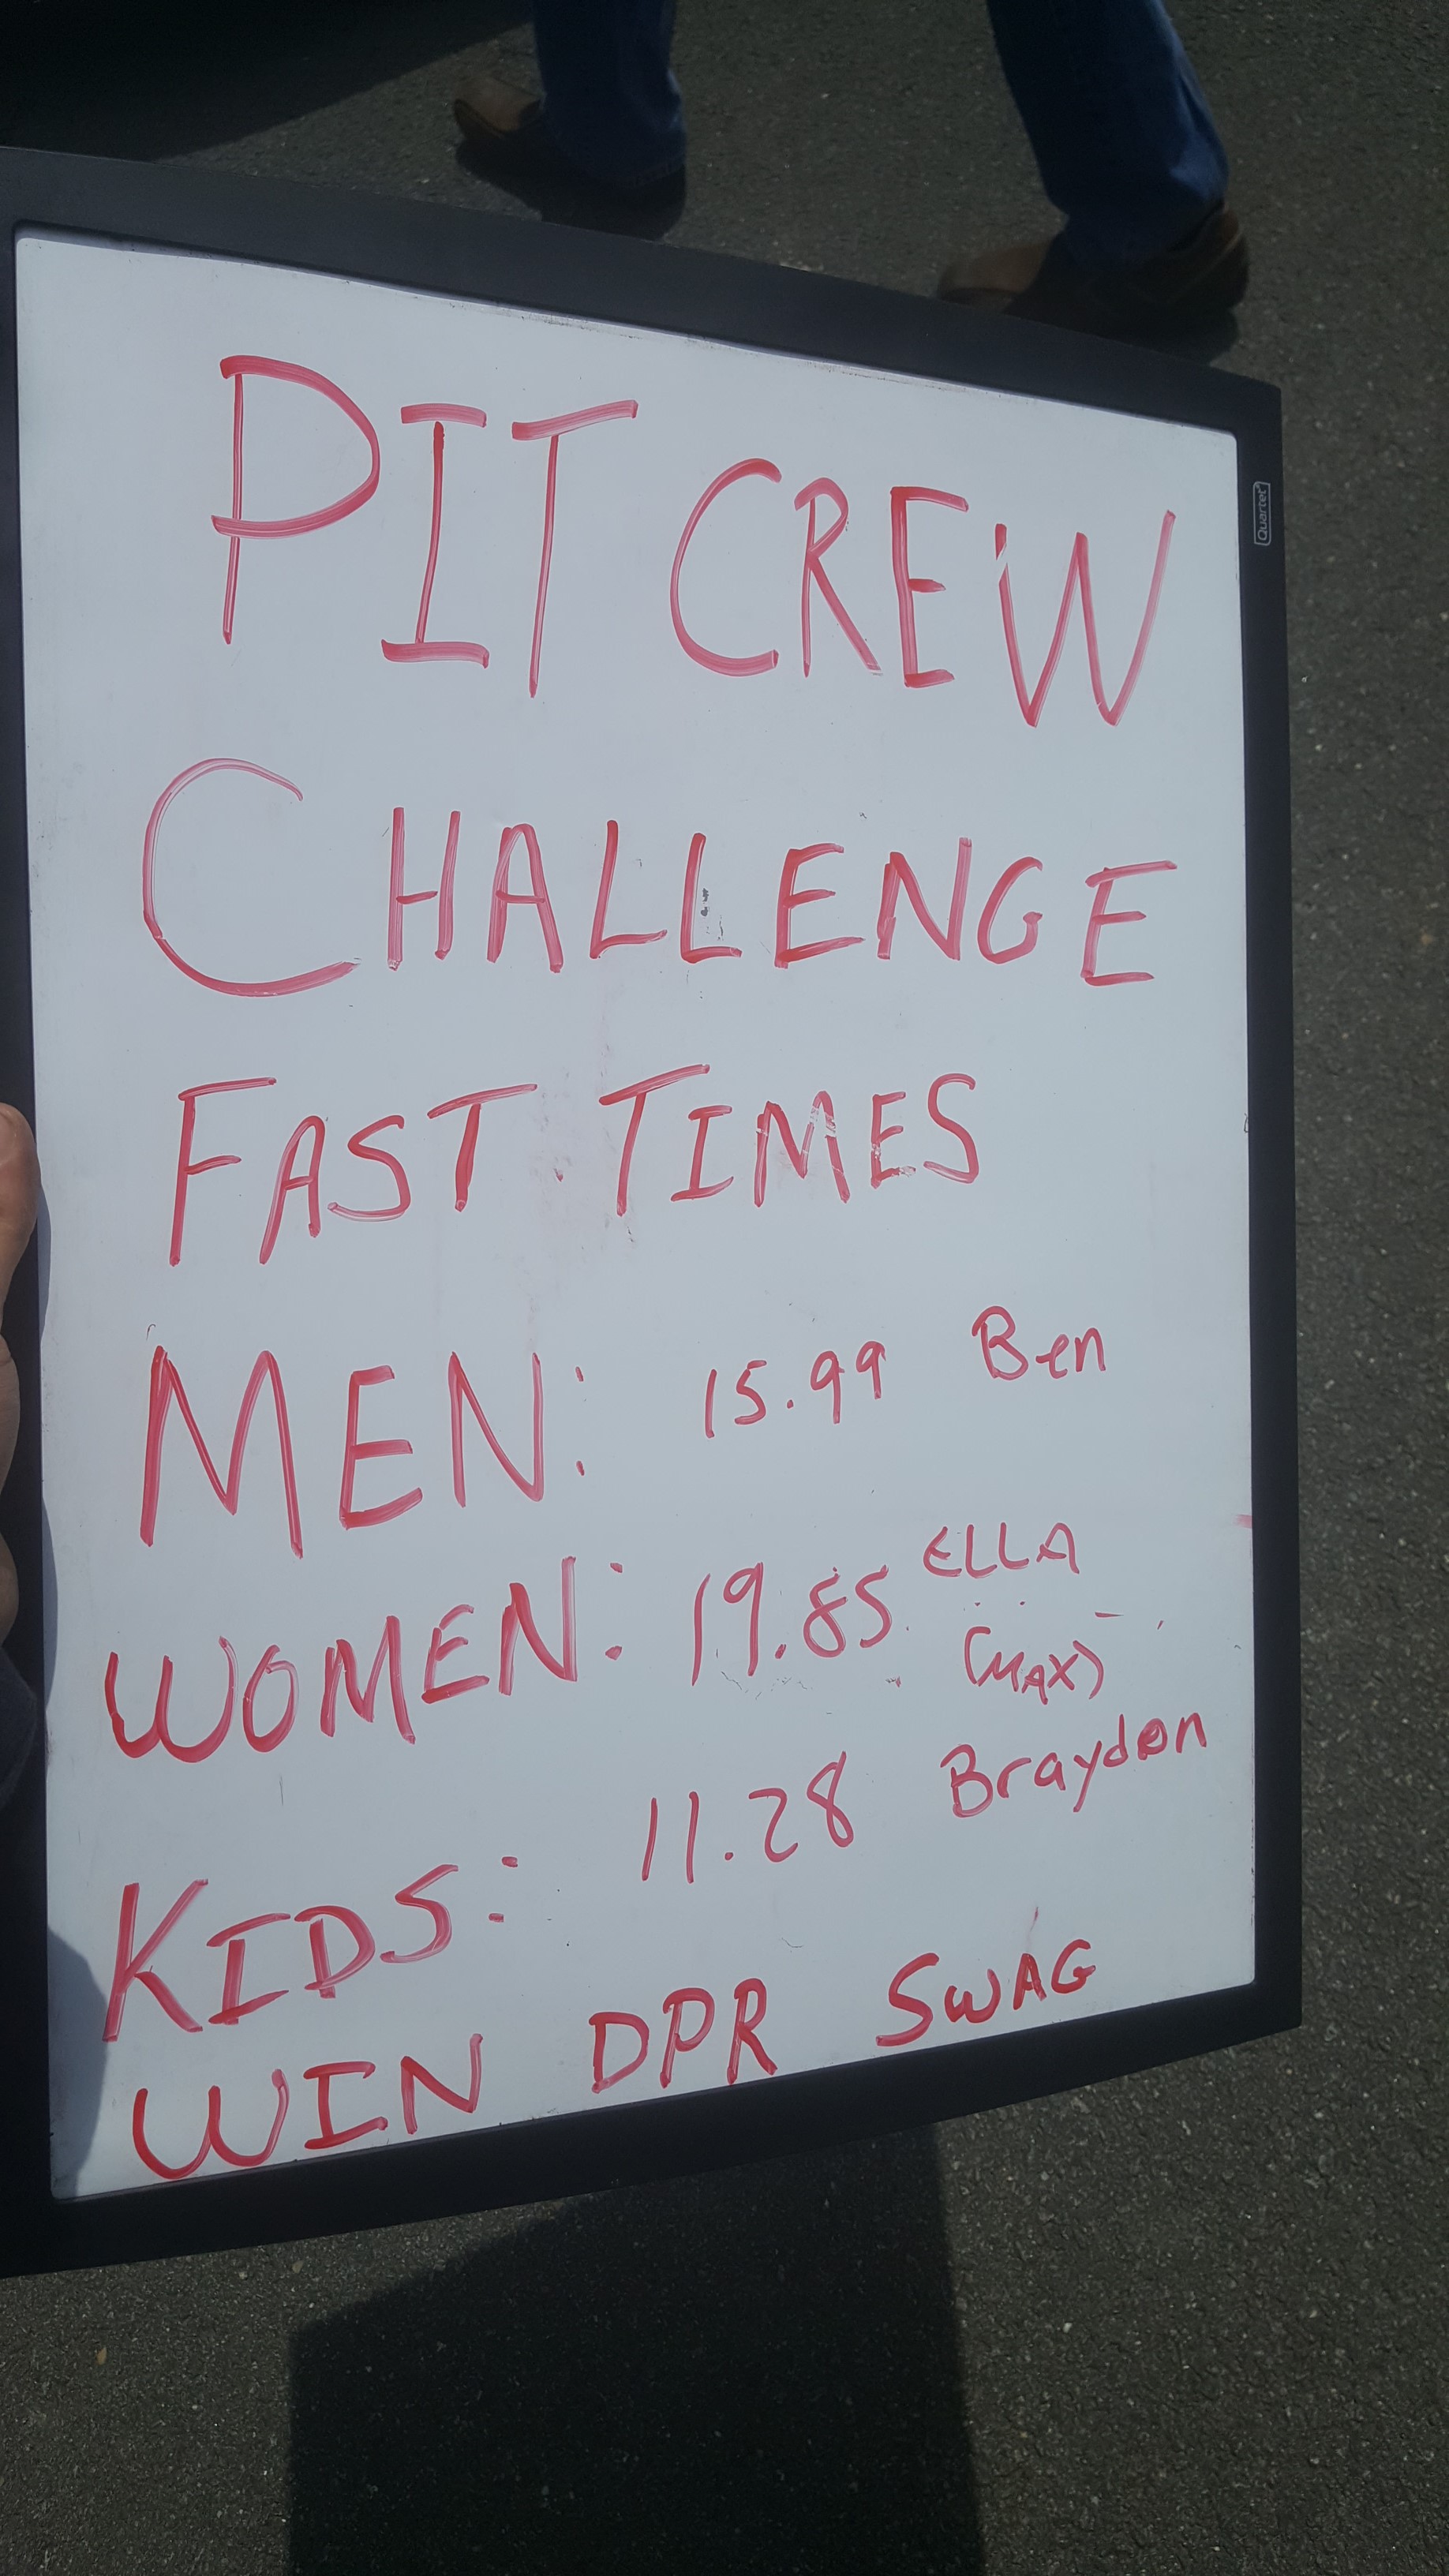 PIT CREW
CHALLENGE
FAST TIMES
MEN: 15.99 Ben
WOMEN: 19.85 ELLA
(MAX)
KIDS: 11.28 Braydon
WIN DPR SWAG
Quartet